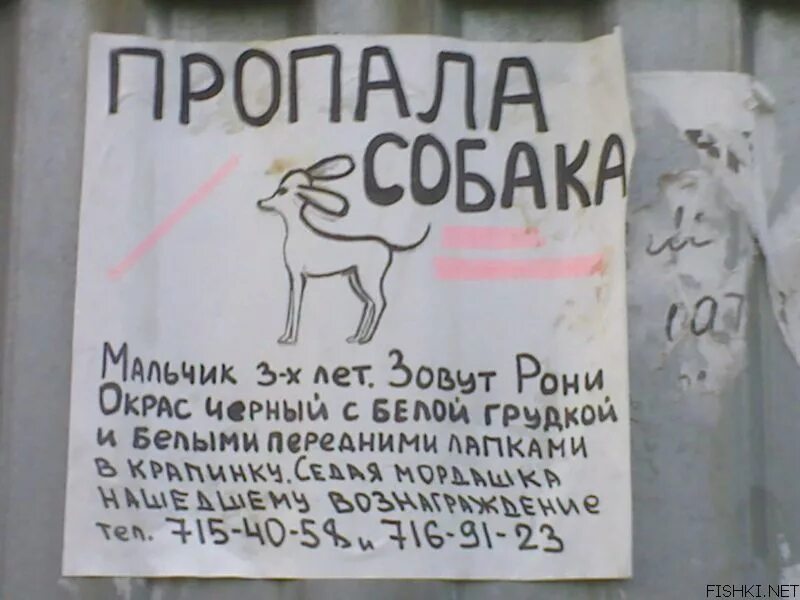 ПРОПАЛА
СОБАКА
Мальчик 3-х лет. Зовут Рони
Окрас черный с белой грудкой
и белыми передними лапками
в крапинку. Седая мордашка
нашедшему вознаграждение
тел. 715-40-58 и 716-91-23
FISHKI.NET